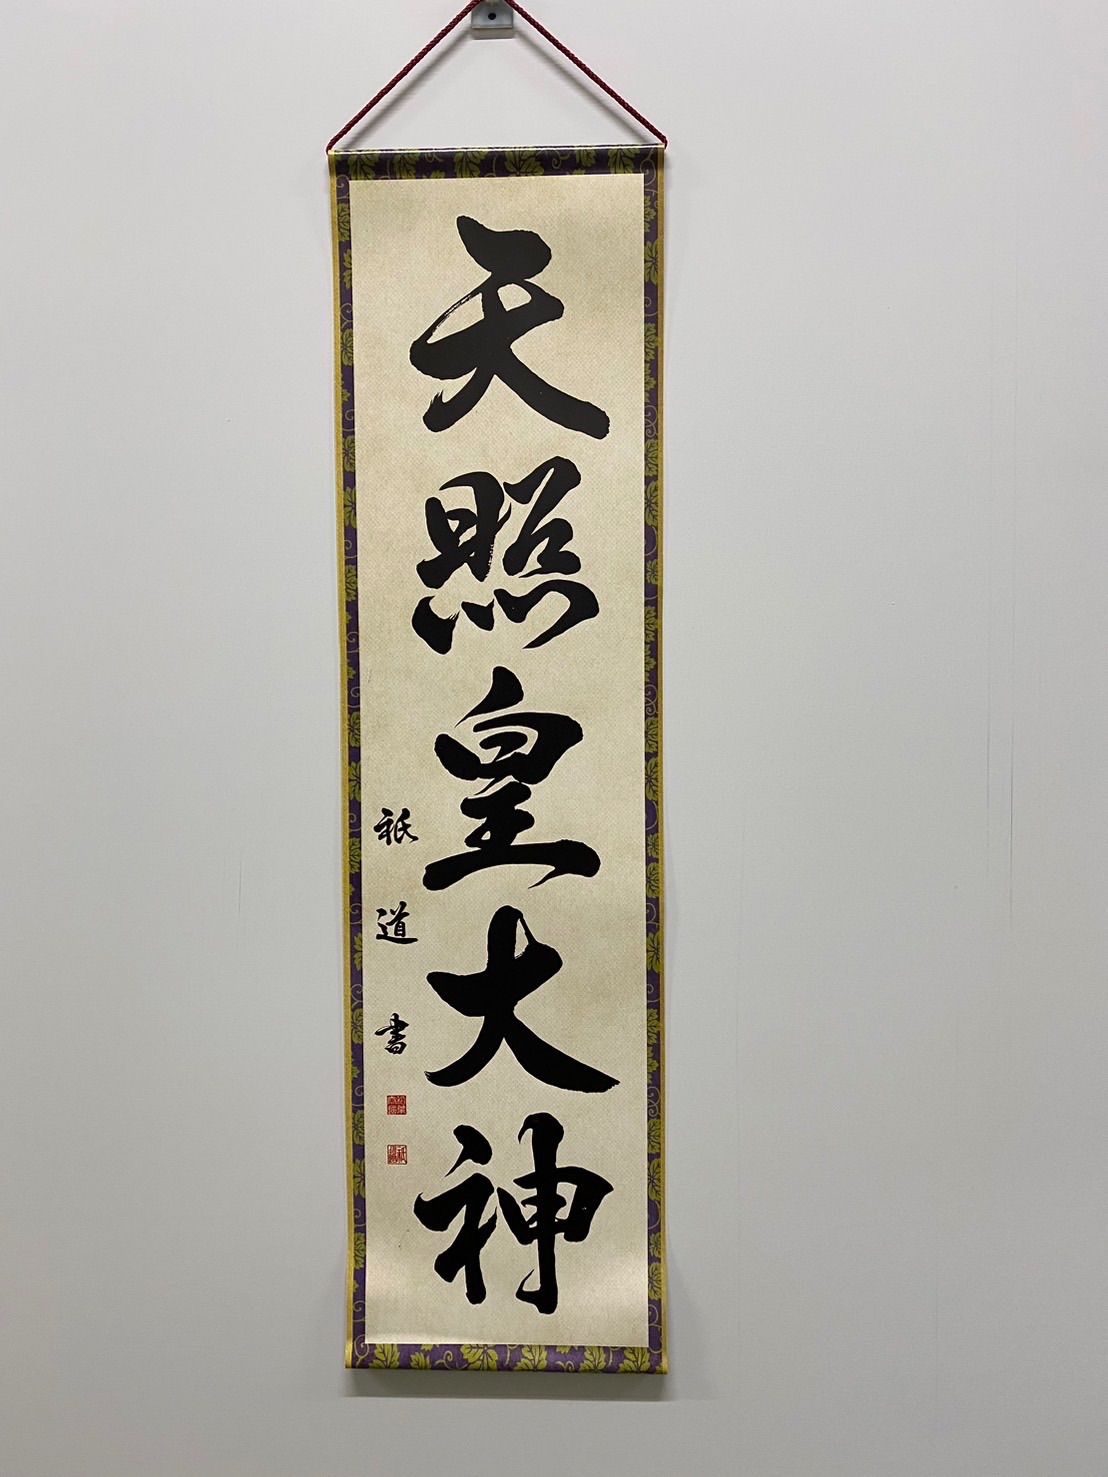 天照皇大神
祇道書